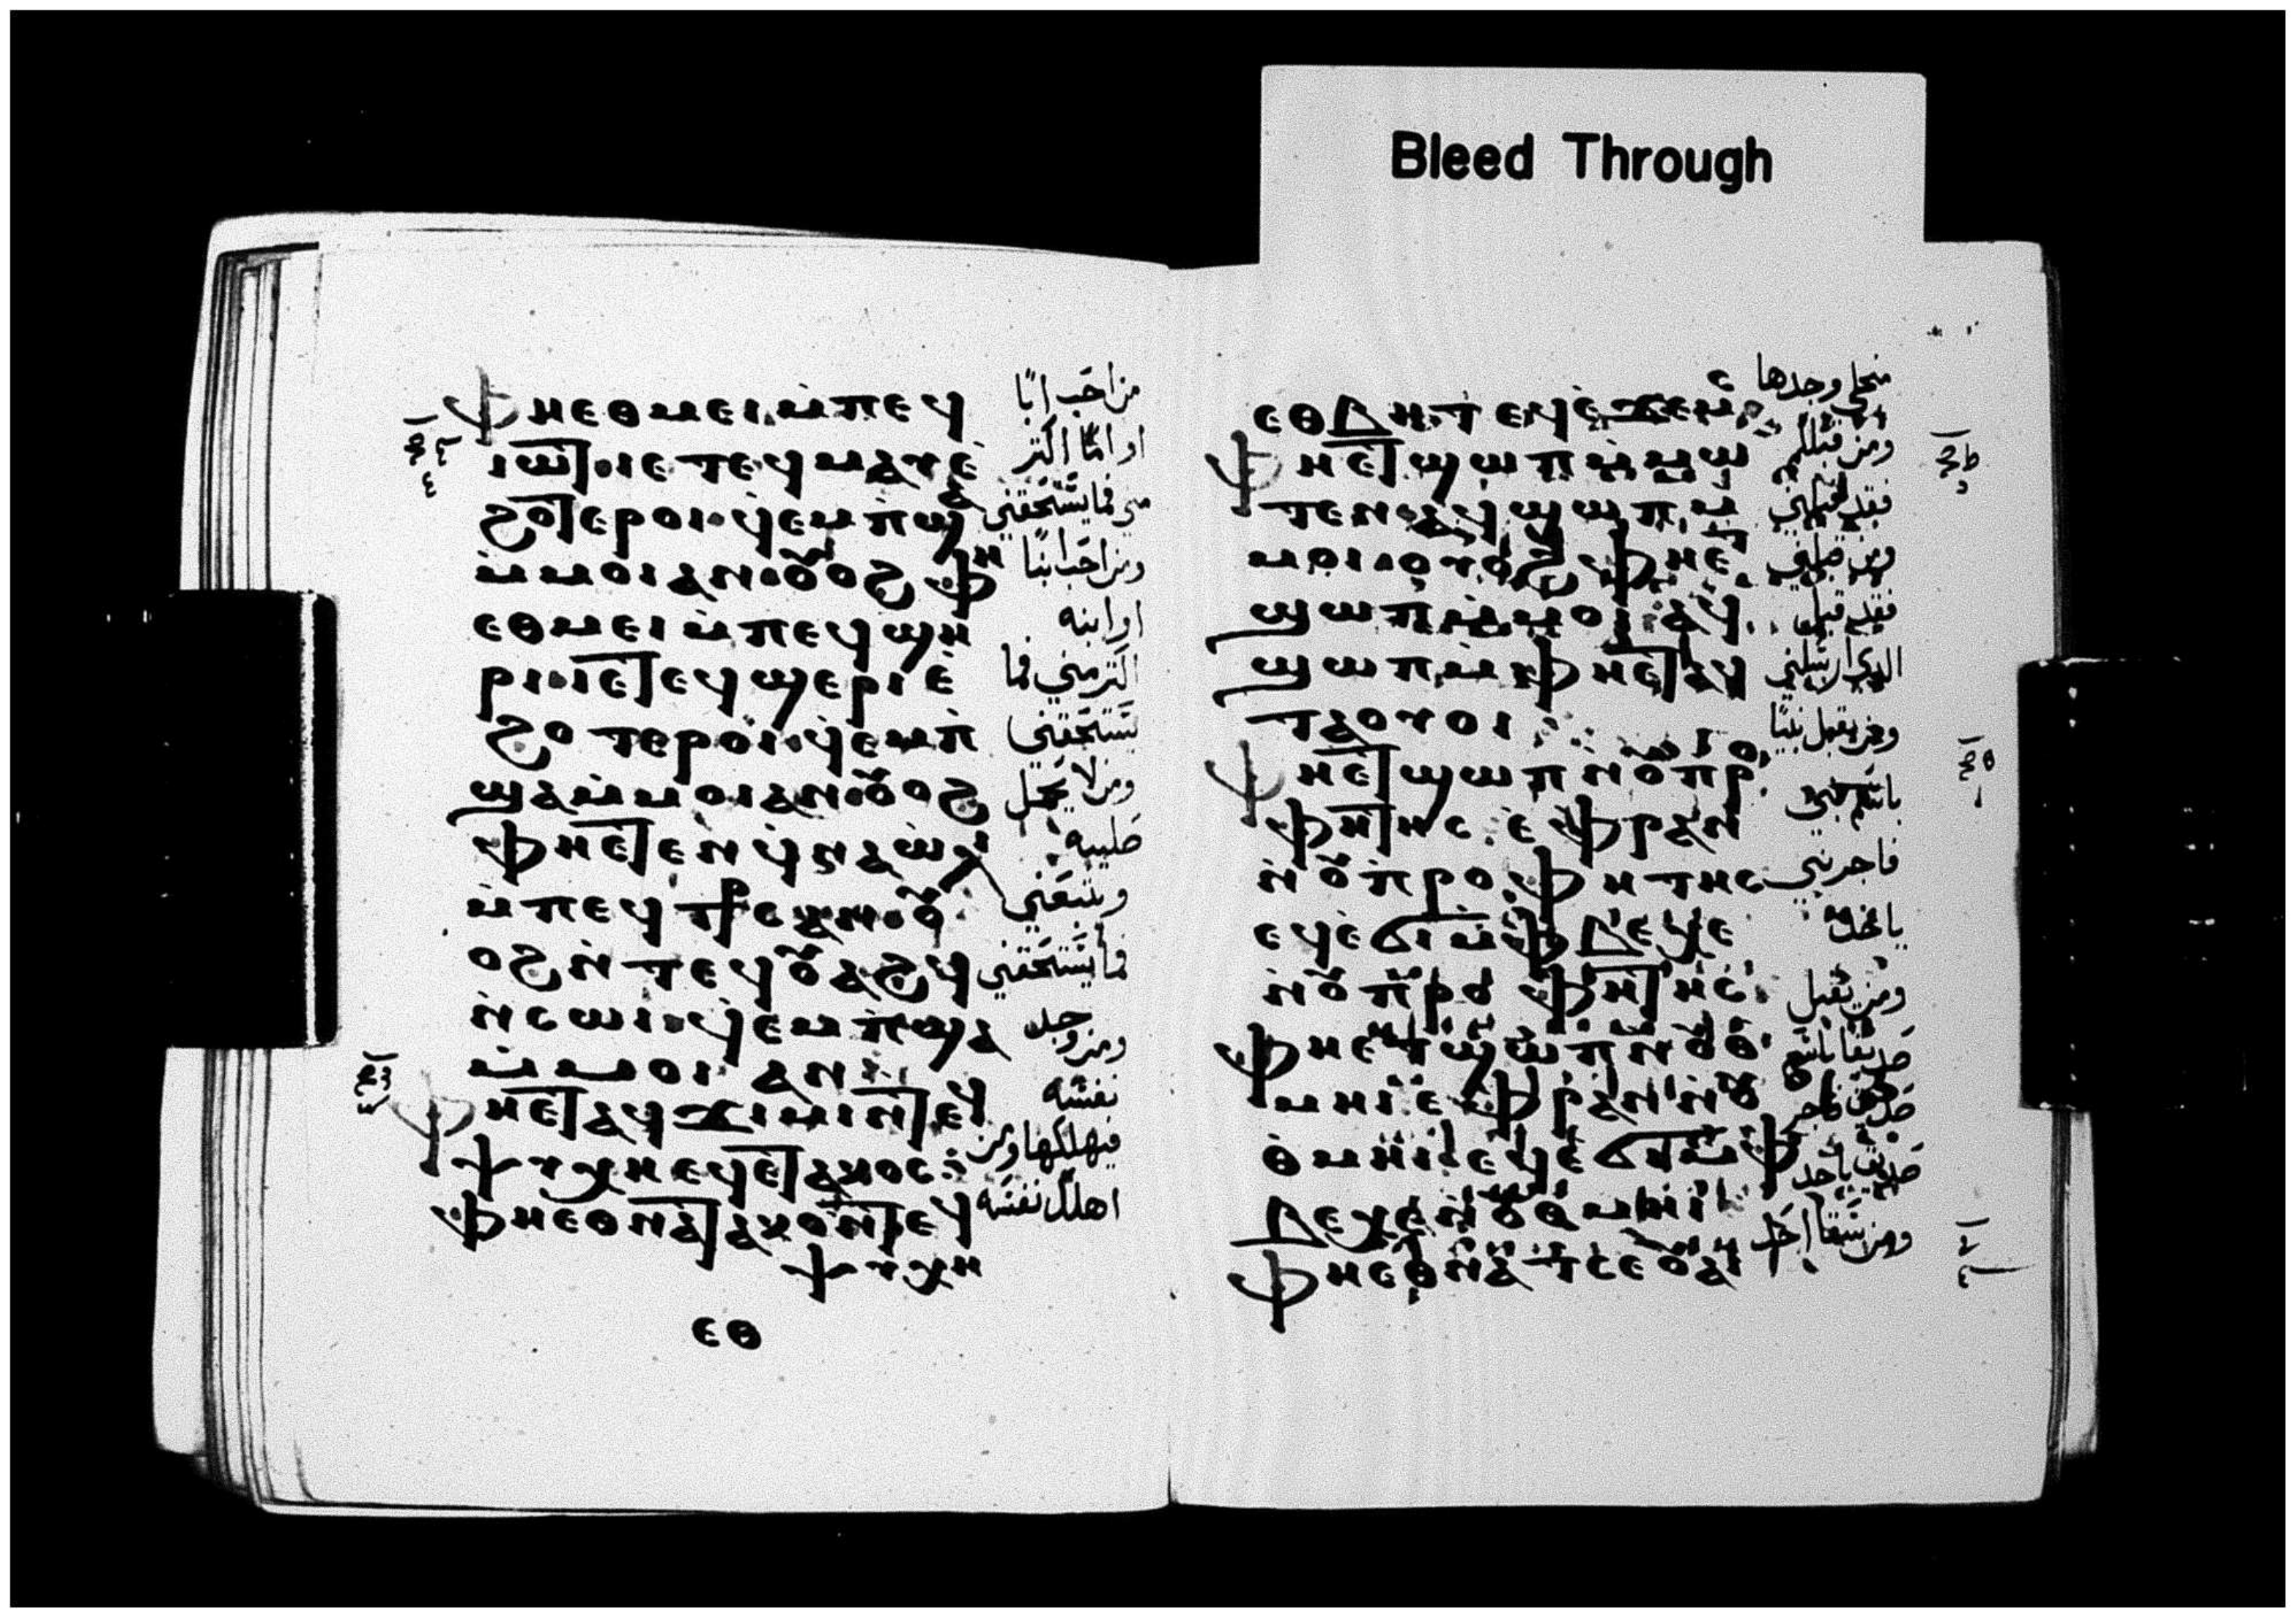 Bleed Through
ⲫⲏⲉⲑⲙⲉⲓ ⲙ̇ⲡⲉϥ
ⲓⲱⲧ ⲓⲉ ⲧⲉϥⲙⲁⲩ ⲉ̇
ϩⲟⲧⲉ ⲉⲣⲟⲓ ϥ̇ⲉⲙⲡ̇ϣⲁ
ⲙ̇ⲙⲟⲓ ⲁⲛ ⲟⲩⲟϩ ⲫⲏ
ⲉⲑⲙⲉⲓ ⲙ̇ⲡⲉϥϣⲏ
ⲣⲓ ⲓⲉ ⲧⲉϥϣⲉⲣⲓ ⲉ̇
ϩⲟⲧⲉⲣⲟⲓ ϥ̇ⲉⲙⲡ̇
ϣⲁ ⲙ̇ⲙⲟⲓ ⲁⲛ ⲟⲩⲟϩ
ⲫⲏⲉⲧⲉⲛϥ̇ⲛⲁⲱⲗⲓ
ⲙ̇ⲡⲉϥⲥⲧⲁⲩⲣⲟⲥ ⲁⲛ ⲟⲩ
ⲟϩ ⲛ̇ⲧⲉϥⲟⲩⲁϩϥ
ⲛ̇ⲥⲱⲓ ϥ̇ⲉⲙⲡ̇ϣⲁ
ⲙ̇ⲙⲟⲓ ⲁⲛ
ⲫⲏⲉⲧⲁϥϫⲓⲙⲓ ⲛ̇ⲧⲉϥ
ⲯⲩⲭⲏ ⲉϥⲉ̇ⲧⲁⲕⲟⲥ
ⲫⲏⲉⲑⲛⲁⲧⲁⲕⲟ ⲛ̇ⲧⲉϥ
ⲯⲩⲭⲏ
ⲉⲑ
من احب ابًا
او امًا اكثر
مني فما يستحقني
ومن احب ابنًا
او ابنه
اكثر مني فما
يستحقني
ومن لا يحمل
صليبه
ويتبعني
فما يستحقني
ومن وجد
نفسه
فيهلكها ومن
اهلك نفسه
ⲉⲑⲃⲏⲧ ⲉϥⲉ̇ϫⲉⲙⲥ
ⲫⲏⲉⲧϣⲱⲡ ⲙ̇ⲙⲱ
ⲧⲉⲛ ⲁϥϣⲱⲡ ⲙ̇
ⲙⲟⲓ ⲟⲩⲟϩ ⲫⲏⲉⲧ
ϣⲱⲡ ⲙ̇ⲙⲟⲓ ⲁϥ
ϣⲱⲡ ⲙ̇ⲫⲏⲉⲧⲁϥ
ⲧⲁⲟⲩⲟⲓ
ⲫⲏⲉⲧϣⲱⲡ ⲛ̇ⲟⲩⲡⲣⲟ
ⲫⲏⲧⲏⲥ ⲉ̇ⲫⲣⲁⲛ
ⲛ̇ⲟⲩⲡⲣⲟⲫⲏⲧⲏⲥ
ⲉϥⲉ̇ϭⲓ ⲙ̇ⲫⲃⲉⲭⲉ
ⲛ̇ⲟⲩⲡⲣⲟⲫⲏⲧⲏⲥ
ⲫⲏⲉⲧϣⲱⲡ ⲛ̇ⲟⲩⲑ
ⲙⲏⲓ ⲉ̇ⲫⲣⲁⲛ ⲛ̇ⲟⲩ
ⲑⲙⲏⲓ ⲉϥⲉ̇ϭⲓ ⲙ̇ⲫ
ⲃⲉⲭⲉ ⲛ̇ⲟⲩⲑⲙⲏⲓ
ⲫⲏⲉⲑⲛⲁⲧⲥⲉ ⲟⲩⲁⲓ
من اجلي وجدها
ومن قبلكم
فقد قبلني
ومن قبلني
فقد قبل
الذي ارسلني
ومن يقبل نبيًا
باسم نبي
فاجر نبي
ياخذ
ومن يقبل
صديقًا باسم
صديق فاجر
صديق ياخذ
ومن سقا احد